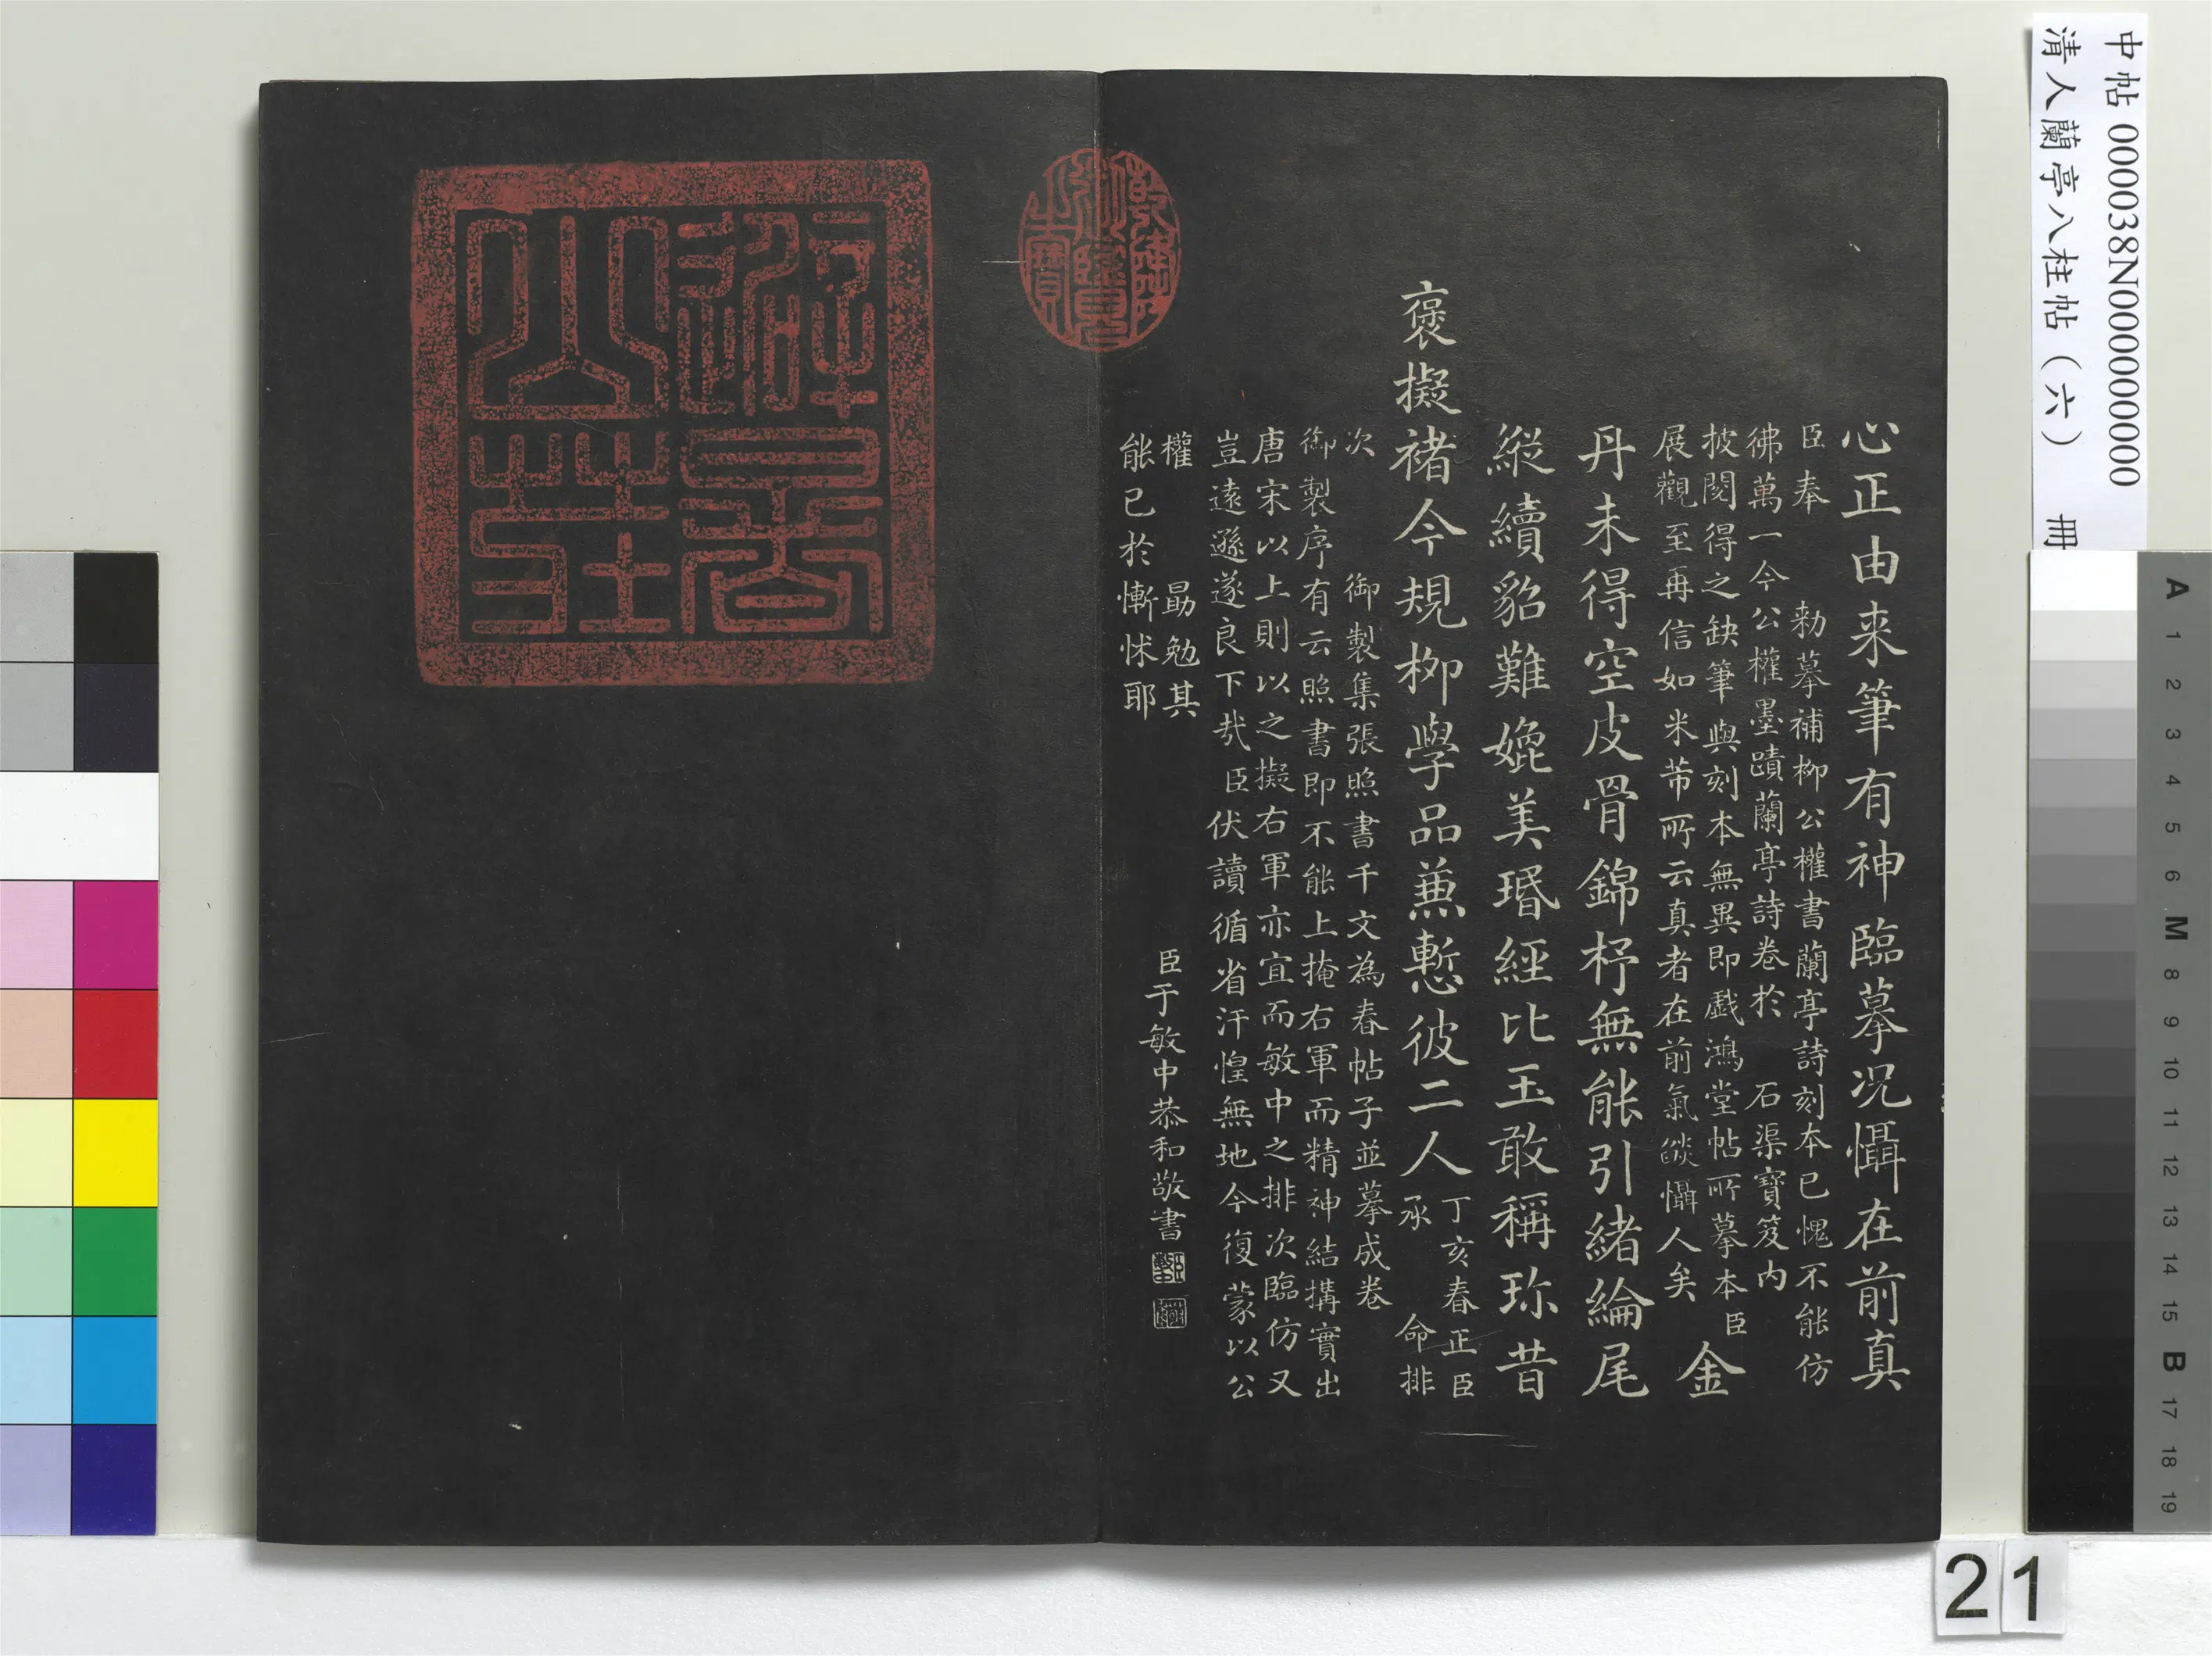 中帖 000038N000000000
清人蘭亭八柱帖（六） 冊
心正由来筆有神臨摹况懾在前真
臣奉 勅摹補柳公權書蘭亭詩刻本已愧不能仿
彿萬一今公權墨蹟蘭亭詩卷於 石渠寶笈内
披閲得之缺筆與刻本無異即戲鴻堂帖所摹本臣
展觀至再信如米芾所云真者在前氣燄懾人矣
金
丹未得空皮骨錦杼無能引緒綸尾
縱續貂難媲美瑉經比玉敢稱珎昔
褒擬褚今規柳學品兼慙彼二人
丁亥春正臣
承 命排
次 御製集張照書千文為春帖子並摹成卷
御製序有云照書即不能上掩右軍而精神結搆實出
唐宋以上則以之擬右軍亦宜而敏中之排次臨仿又
豈遠遜遂良下㢤臣伏讀循省汗惶無地今復蒙以公
權 勗勉其
能已於慚怵耶
臣于敏中恭和敬書
乾隆御覽之寶
避暑山莊
A 1 2 3 4 5 6 M 8 9 10 11 12 13 14 15 B 17 18 19
21